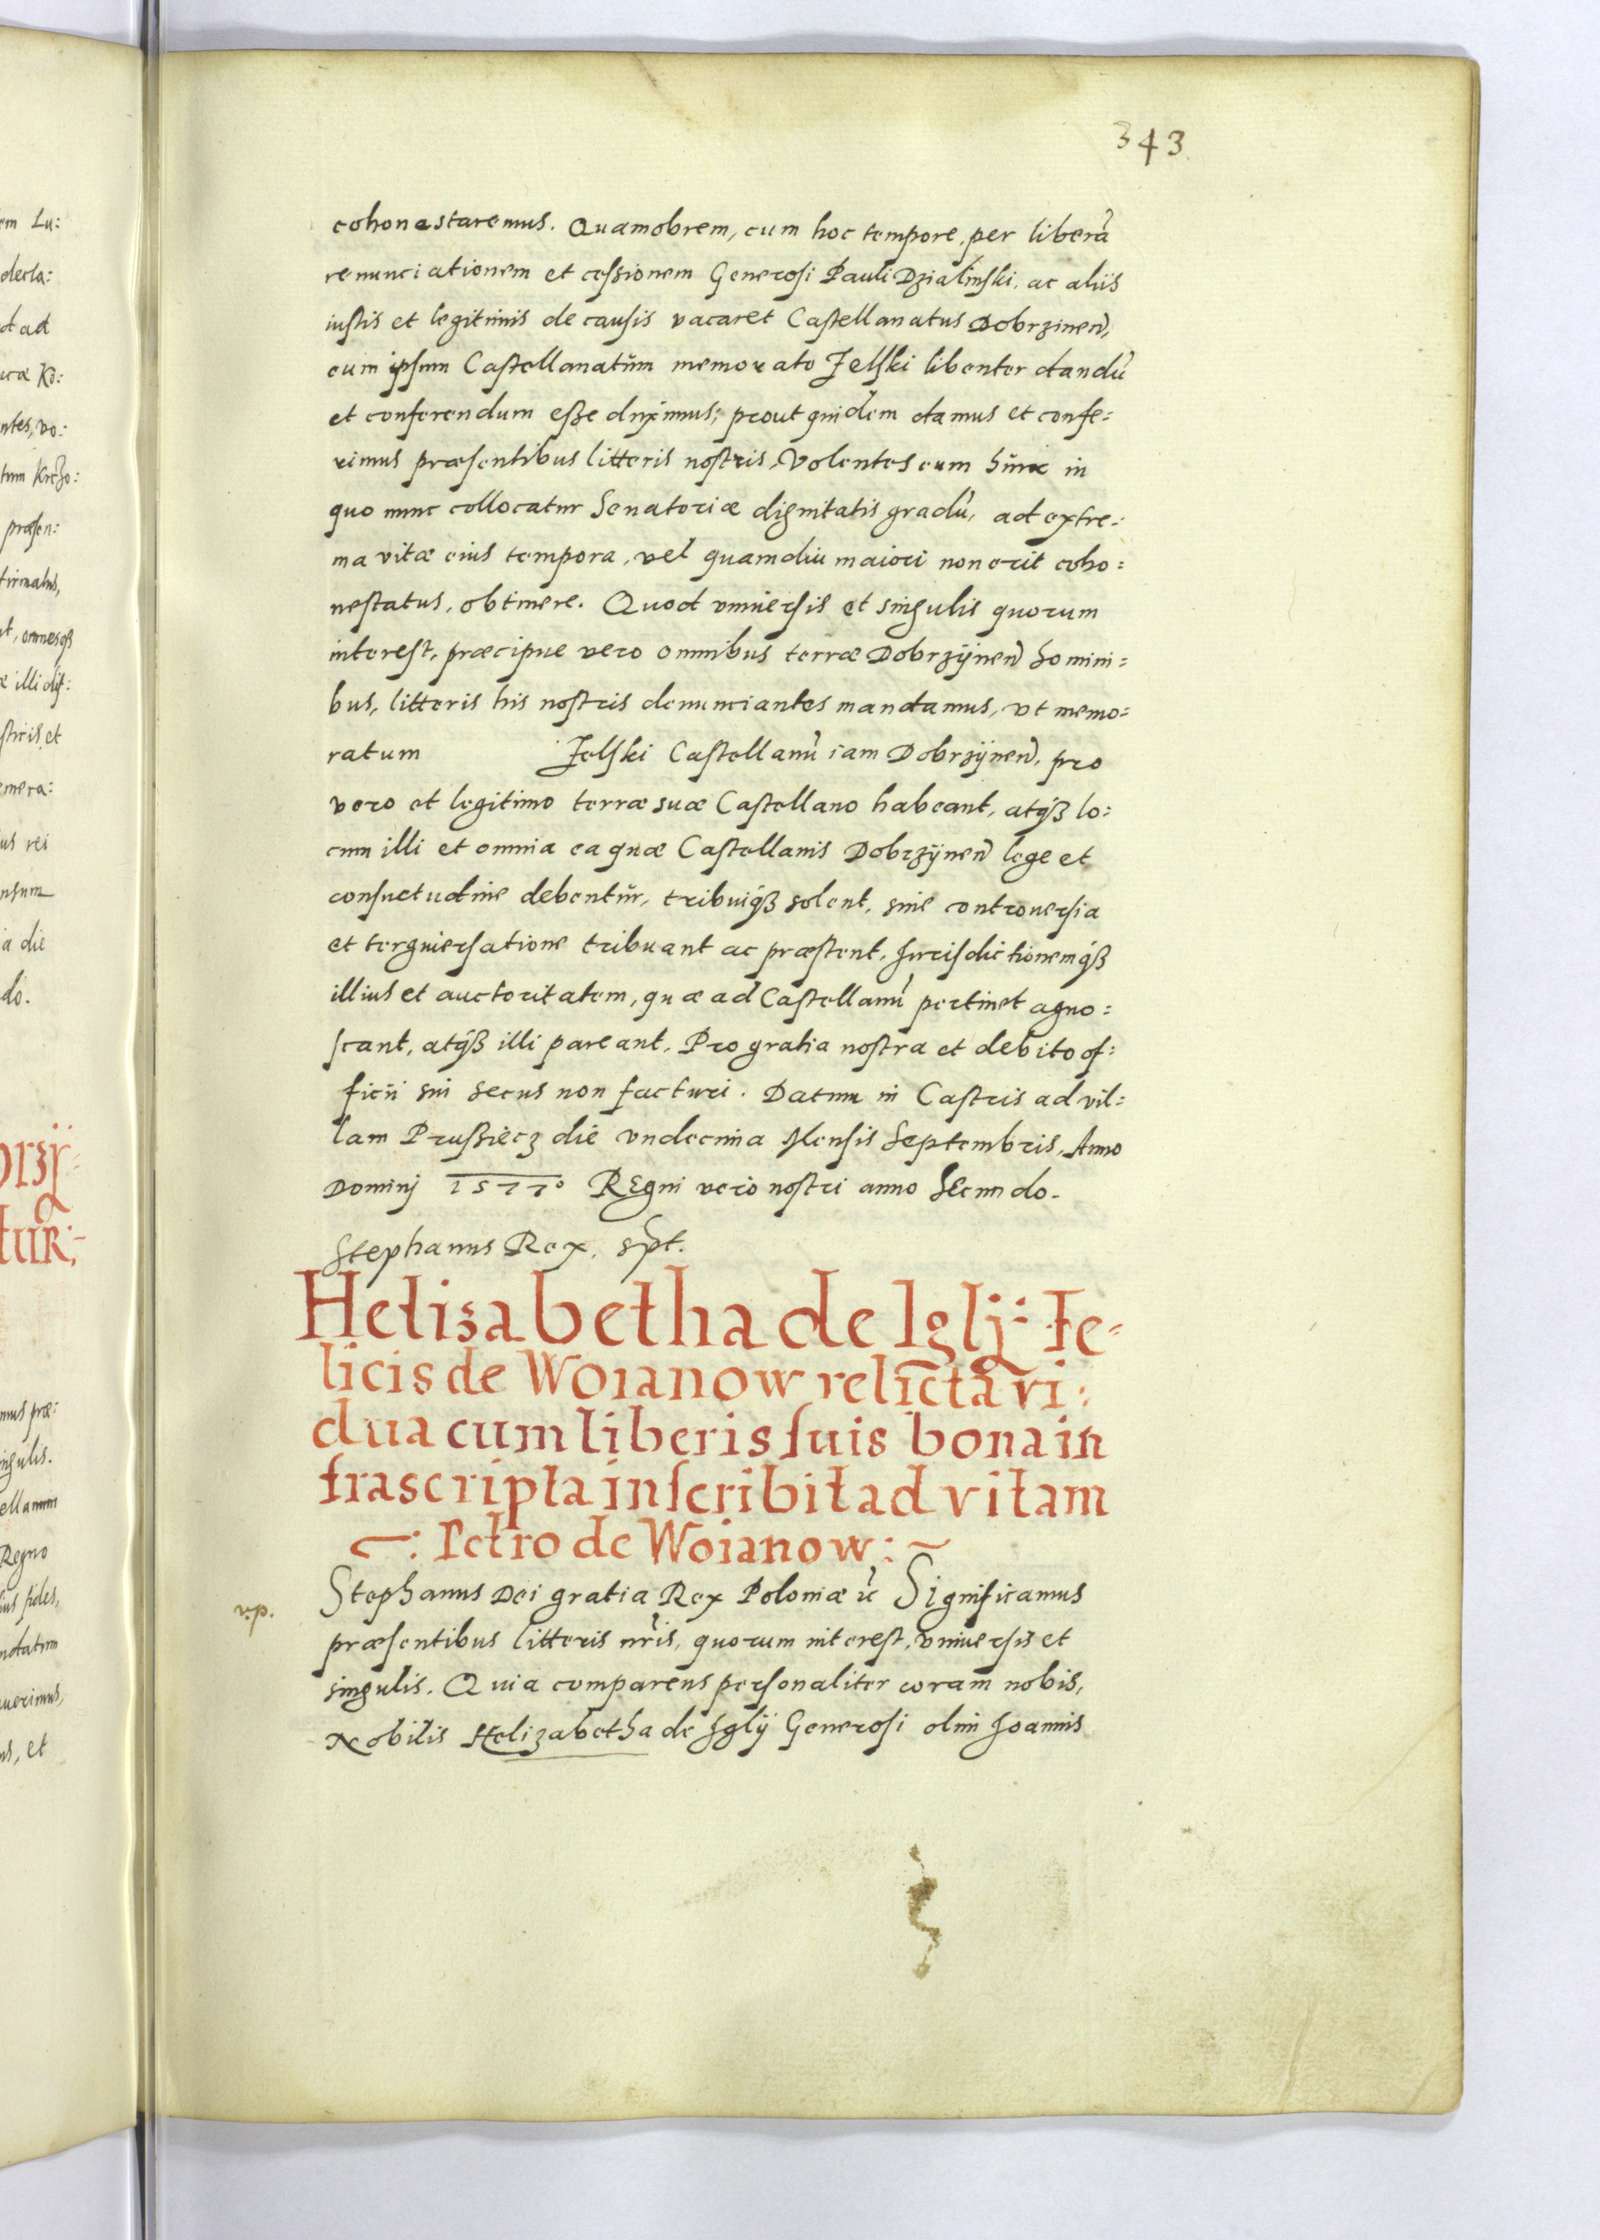 343
cohonestaremus. Quamobrem, cum hoc tempore, per liberã
renunciationem et cessionem Generosi Pauli Dzialinski, ac aliis
iustis et legitimis de causis vacaret Castellanatus Dobrzinen,
eum ipsum Castellanatum memorato Jelski libenter dandũ
et conferendum esse duximus; prout quidem damus et confe:
rimus præsentibus litteris nostris, Volentes eum hunc in
quo nunc collocatur Senatoriæ dignitatis gradũ, ad extre:
ma vitæ eius tempora, vel quamdiu maiori non erit coho:
nestatus, obtinere. Quod vniuersis et singulis quorum
interest, præcipue vero omnibus terræ Dobrzÿnen homini:
bus, litteris his nostris denunciantes mandamus, vt memo:
ratum Jelski Castellanũ iam Dobrzÿnen, pro
vero et legitimo terræ suæ Castellano habeant, atqß lo:
cum illi et omnia ea quæ Castellanis Dobrzÿnen lege et
consuetudine debentur, tribuiqß solent, sine controuersia
et terguiersatione tribuant ac præstent, Jurisdictionemqß
illius et auctoritatem, quæ ad Castellanũ pertinet agno:
scant, atqß illi pareant, Pro gratia nostra et debito of:
ficii sui secus non facturi. Datum in Castris ad vil:
lam Prussiecz die vndecima Mensis Septembris, Anno
Dominj 1577º Regni vero nostri anno Secundo.
Stephanus Rex, spt.
Helizabetha de Iglÿ: Fe-
licis de Woianow relicta vi:
dua cum liberis suis bona in
frascripta inscribit ad vitam
Petro de Woianow:
v.p.
Stephanus Dei gratia Rex Poloniæ ʒc Significamus
præsentibus litteris nr̃is, quorum interest, vniuersis et
singulis. Quia comparens personaliter coram nobis,
Nobilis Helizabetha de Jglÿ Generosi olim Joannis